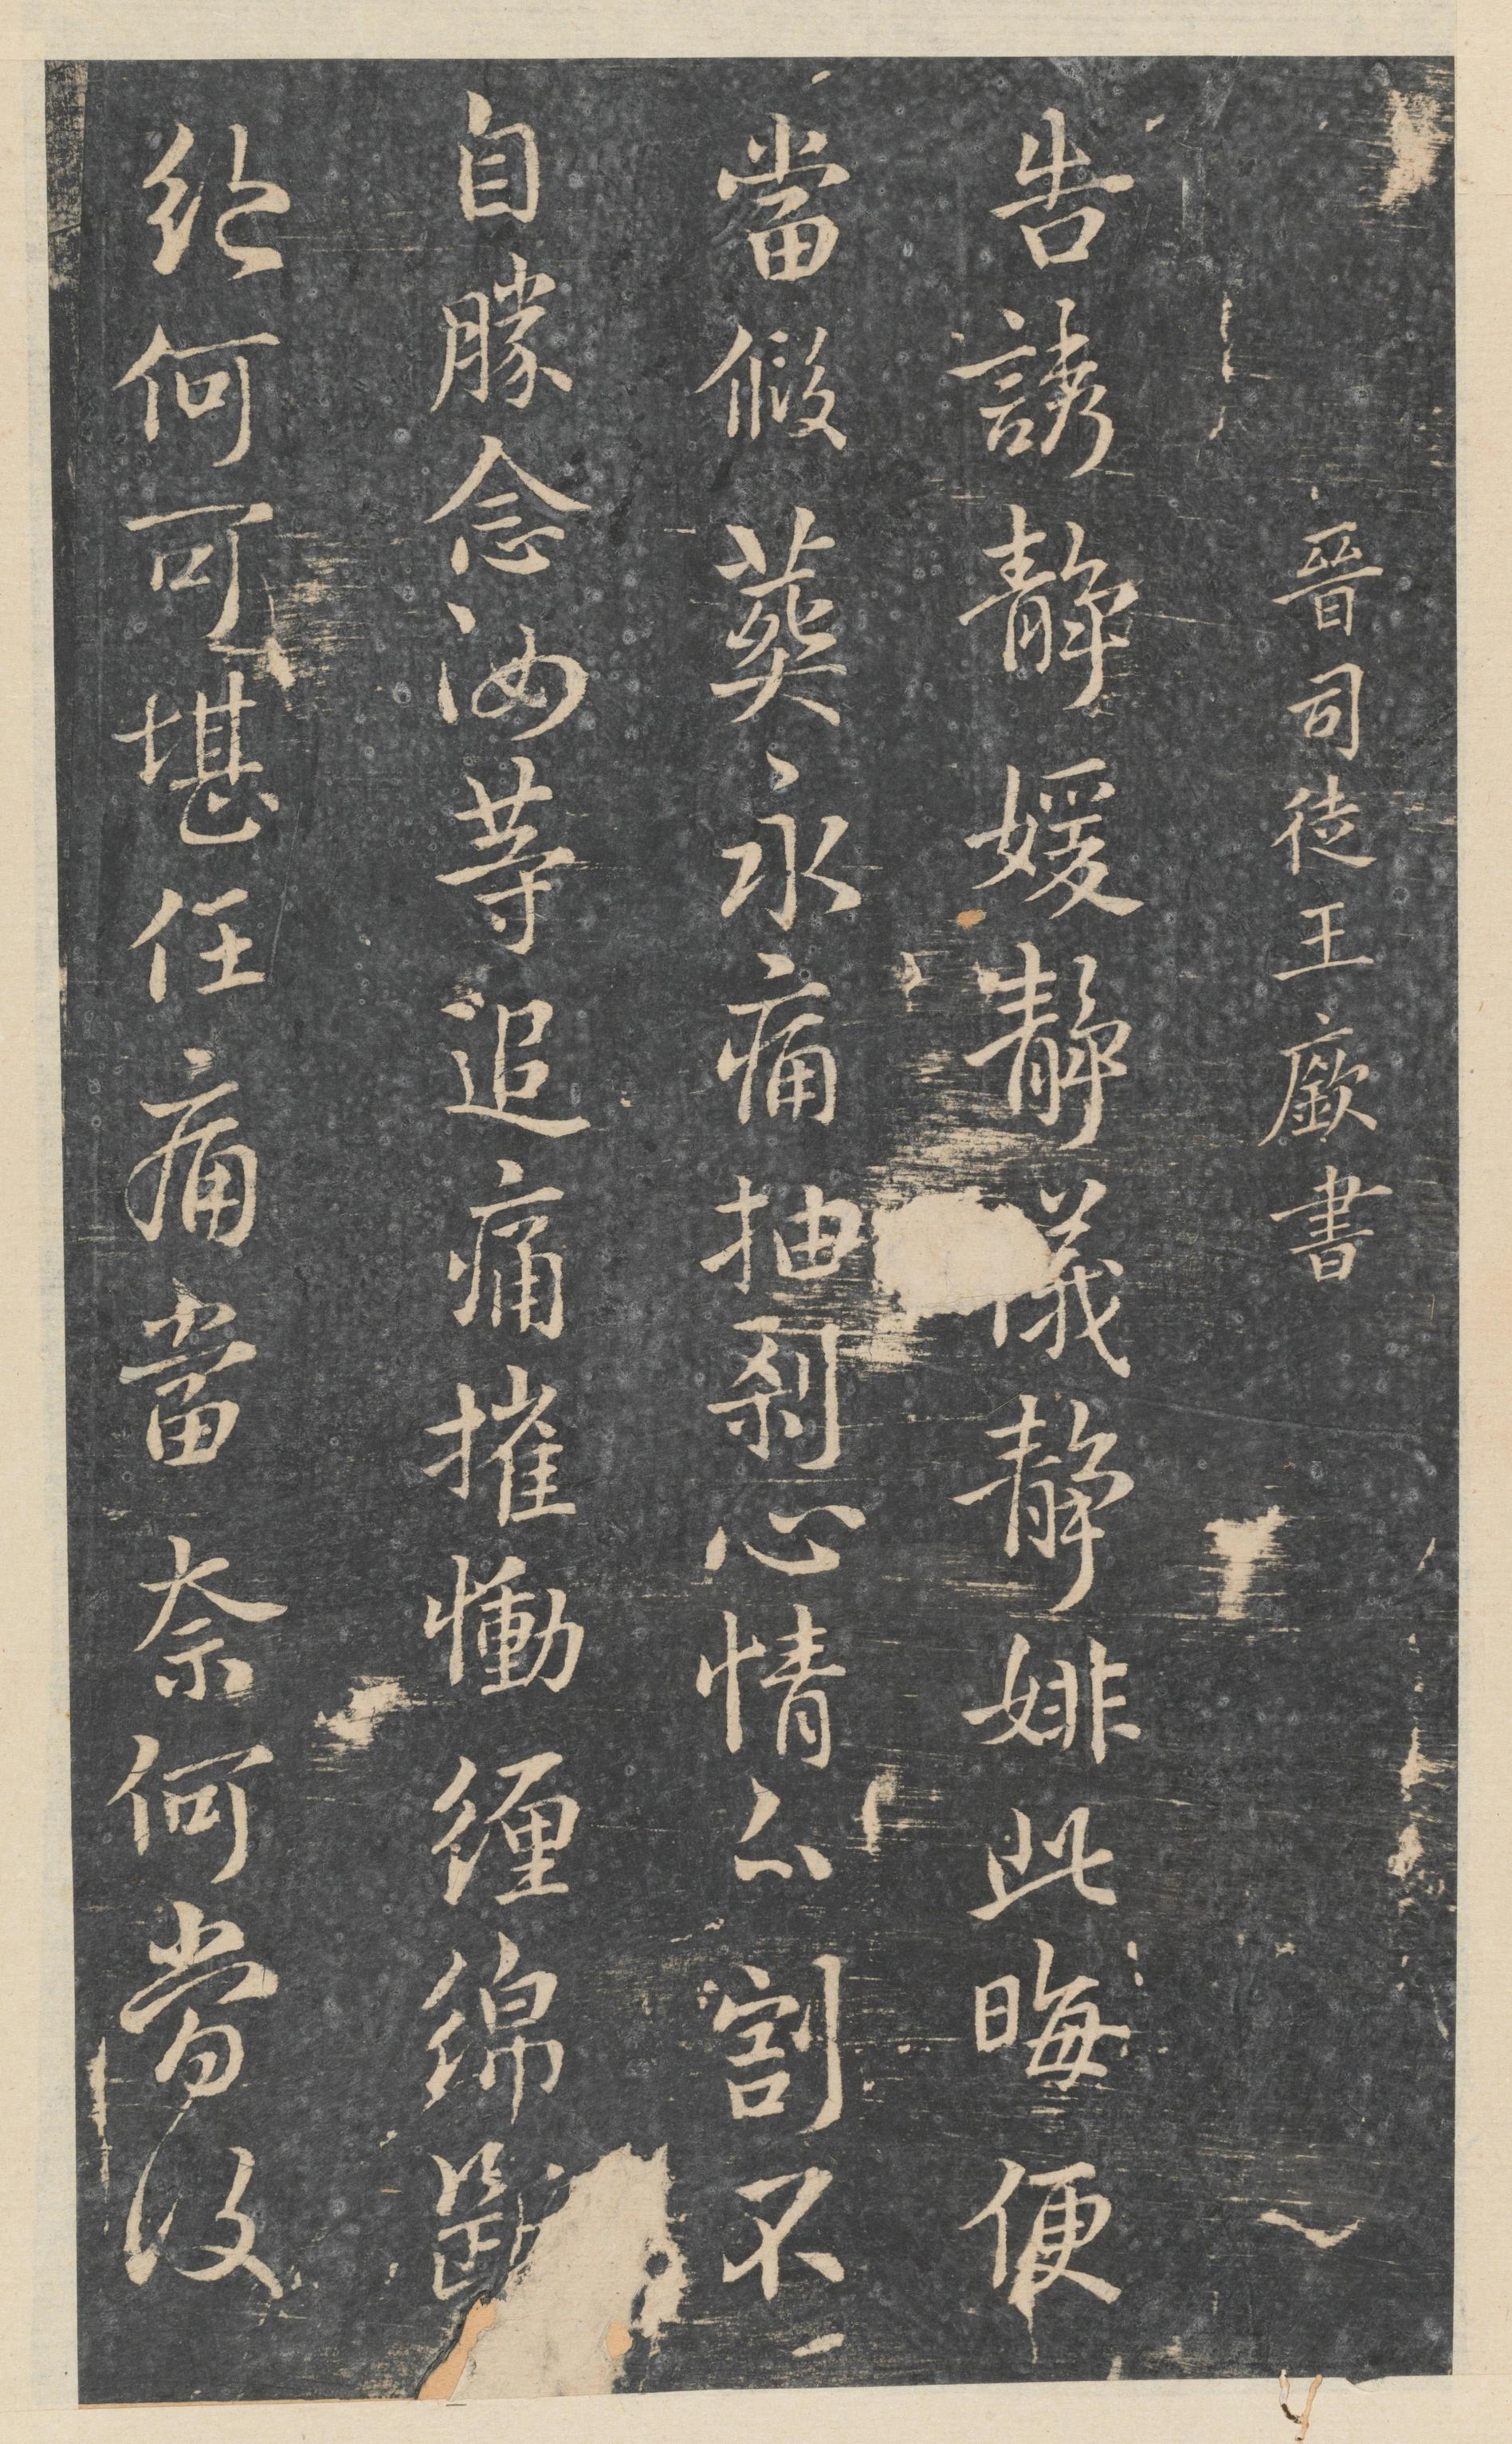 晉司徒王廞書
告誘靜媛靜儀靜姚此晦便
當假葬永痛抽剥心情分割不
自勝念汝等追痛摧慟纏綿斷
絕何可堪任痛當奈何當復